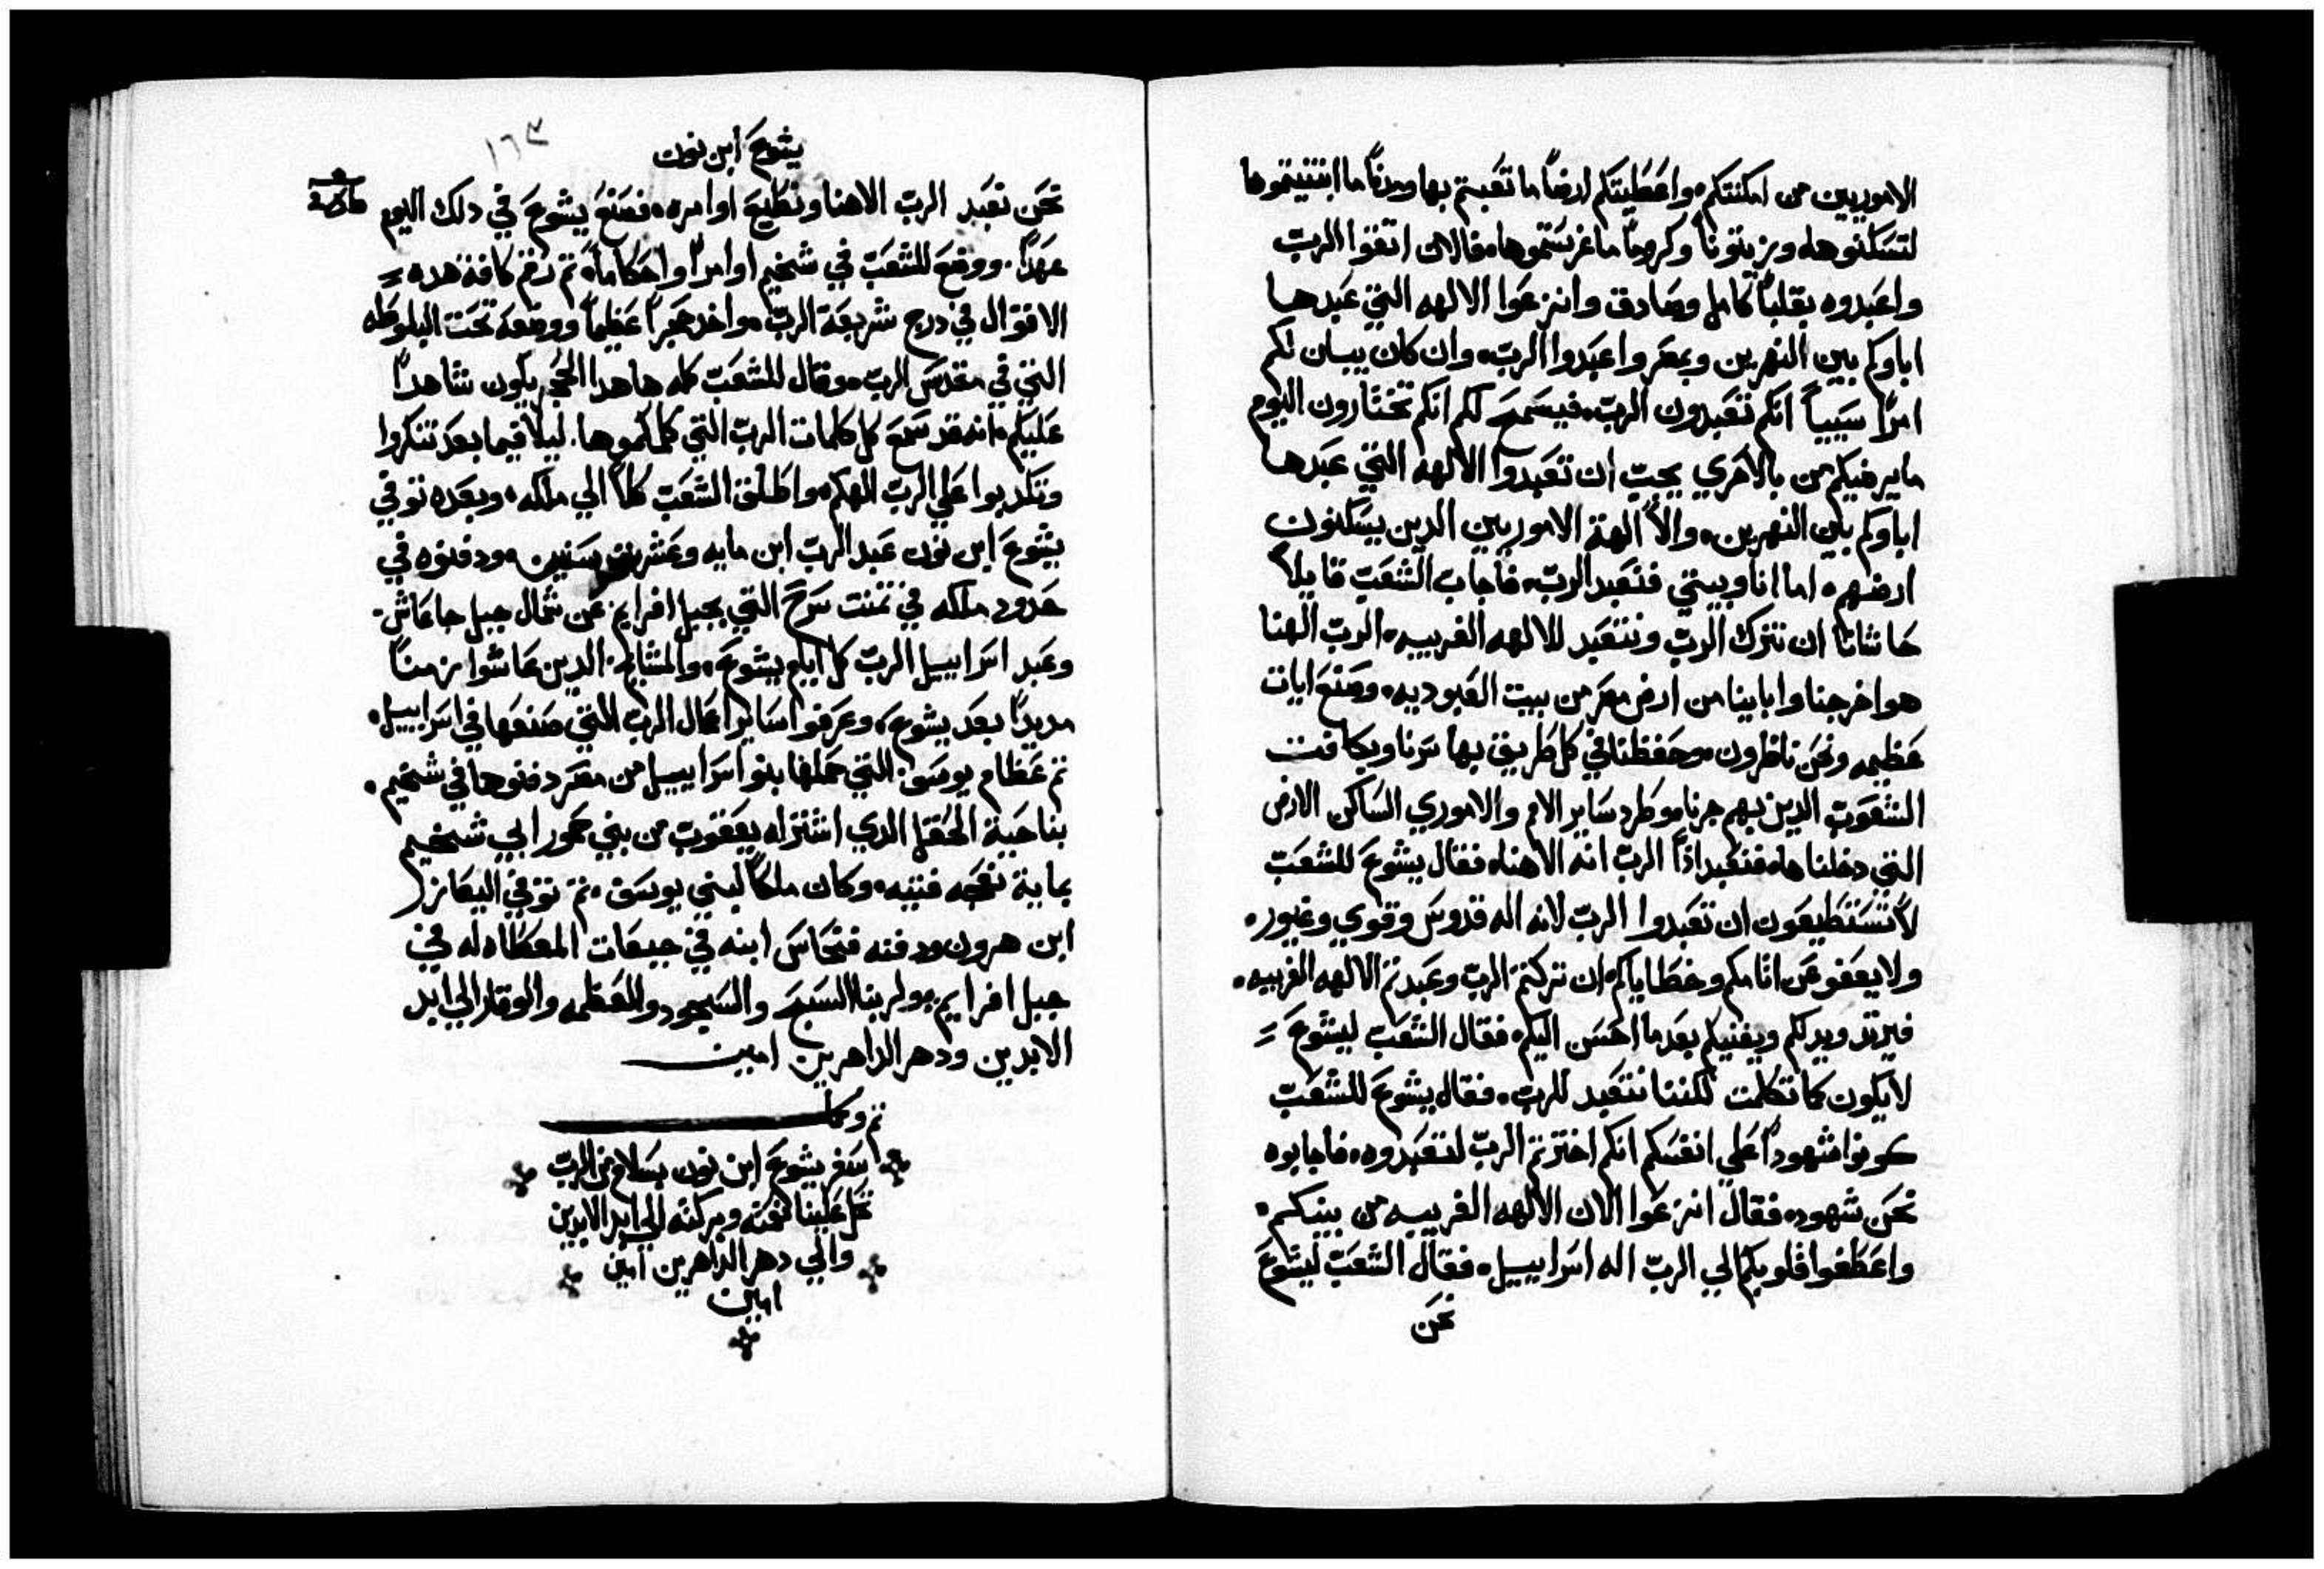 الاموريين من امكنتكم، واعطيتكم ارضاً ما تعبتم بها ومدناً ما ابتنيتموها
لتسكنوها، وزيتوناً وكروماً ما غرستموها، فالان اتقوا الرب
واعبدوه بقلباً كامل وصادق وانزعوا الالهه التي عبدها
اباوكم بين النهرين وبمصر واعبدوا الرب، وان كان يبان لكم
امراً سيياً انكم تعبدون الرب، فيسمح لكم انكم تختارون اليوم
ما يرضيكم من بالاحري يجب ان تعبدوا الالهه التي عبدها
اباوكم بين النهرين، والا الهة الاموريين الدين يسكنون
ارضهم، اما انا وبيتي فنعبد الرب، فاجاب الشعب قايلاً
حاشانا ان نترك الرب ونتعبد للالهه الغريبه، الرب الهنا
هو اخرجنا وابايينا من ارض مصر من بيت العبوديه، وصنع ايات
عظيمه ونحن ناظرون، وحفظنا في كل طريق بها سرنا وبكافت
الشعوب الدين بهم جزنا، وطرد ساير الامم والاموري الساكن الارض
التي دخلناها، فنعبد اذاً الرب انه الاهنا، فقال يشوع للشعب
لا تستطيعون ان تعبدوا الرب لانه اله قدوس وقوي وغيور،
ولا يعفو عن اثامكم وخطاياكم، ان تركتم الرب وعبدتم الالهه الغريبه،
فيرتد ويدلكم ويفنيكم بعد ما احسن اليكم، فقال الشعب ليشوع
لا يكون كما تكلمت لكننا نتعبد للرب، فقال يشوع للشعب
كونوا شهوداً علي انفسكم انكم اخترتم الرب لتعبدوه، فاجابوه
نحن شهود، فقال انزعوا الان الالهه الغريبه من بينكم،
واعطفوا قلوبكم الي الرب اله اسراييل، فقال الشعب ليشوع
نحن
يشوع ابن نون
١٦٣
نحن نعبد الرب الاهنا ونطيع اوامره، فصنع يشوع في دلك اليوم
عهداً، ووضع للشعب في شخيم اوامراً واحكاماً، ثم رقم كافة هده
الاقوال في درج شريعة الرب، واخد حجراً عظيماً ووضعه تحت البلوطه
التي في مقدس الرب، وقال للشعب كله ها هدا الحجر يكون شاهداً
عليكم، انه قد سمع كل كلمات الرب التي كلمكموها، ليلا فيما بعد تنكروا
وتكدبوا علي الرب الهكم، واطلق الشعب كلاً الي ملكه، وبعده توفي
يشوع ابن نون عبد الرب ابن مايه وعشر سنين، ودفنوه في
حدود ملكه في تمنت سرح التي بجبل افرايم عن شمال جبل جاعاش
وعبد اسراييل الرب كل ايام يشوع، والمشايخ الدين عاشوا زمناً
مديداً بعد يشوع، وعرفوا ساير اعمال الرب التي صنعها في اسراييل،
ثم عظام يوسف التي حملها بنو اسراييل من مصر دفنوها في شخيم،
بناحية الحقل الدي اشتراه يعقوب من بني حمور ابي شخيم
بماية نعجه فتيه، وكان ملكاً لبني يوسف، ثم توفي اليعازر
ابن هرون ودفنه فنحاس ابنه في جبعات المعطاه له في
جبل افرايم، ولربنا السبح والسجود والعظمه والوقار الي ابد
الابدين ودهر الداهرين امين
تم وكمل
سفر يشوع ابن نون بسلام من الرب
تحل علينا نعمته وبركته الي ابد الابدين
والي دهر الداهرين امين
امين